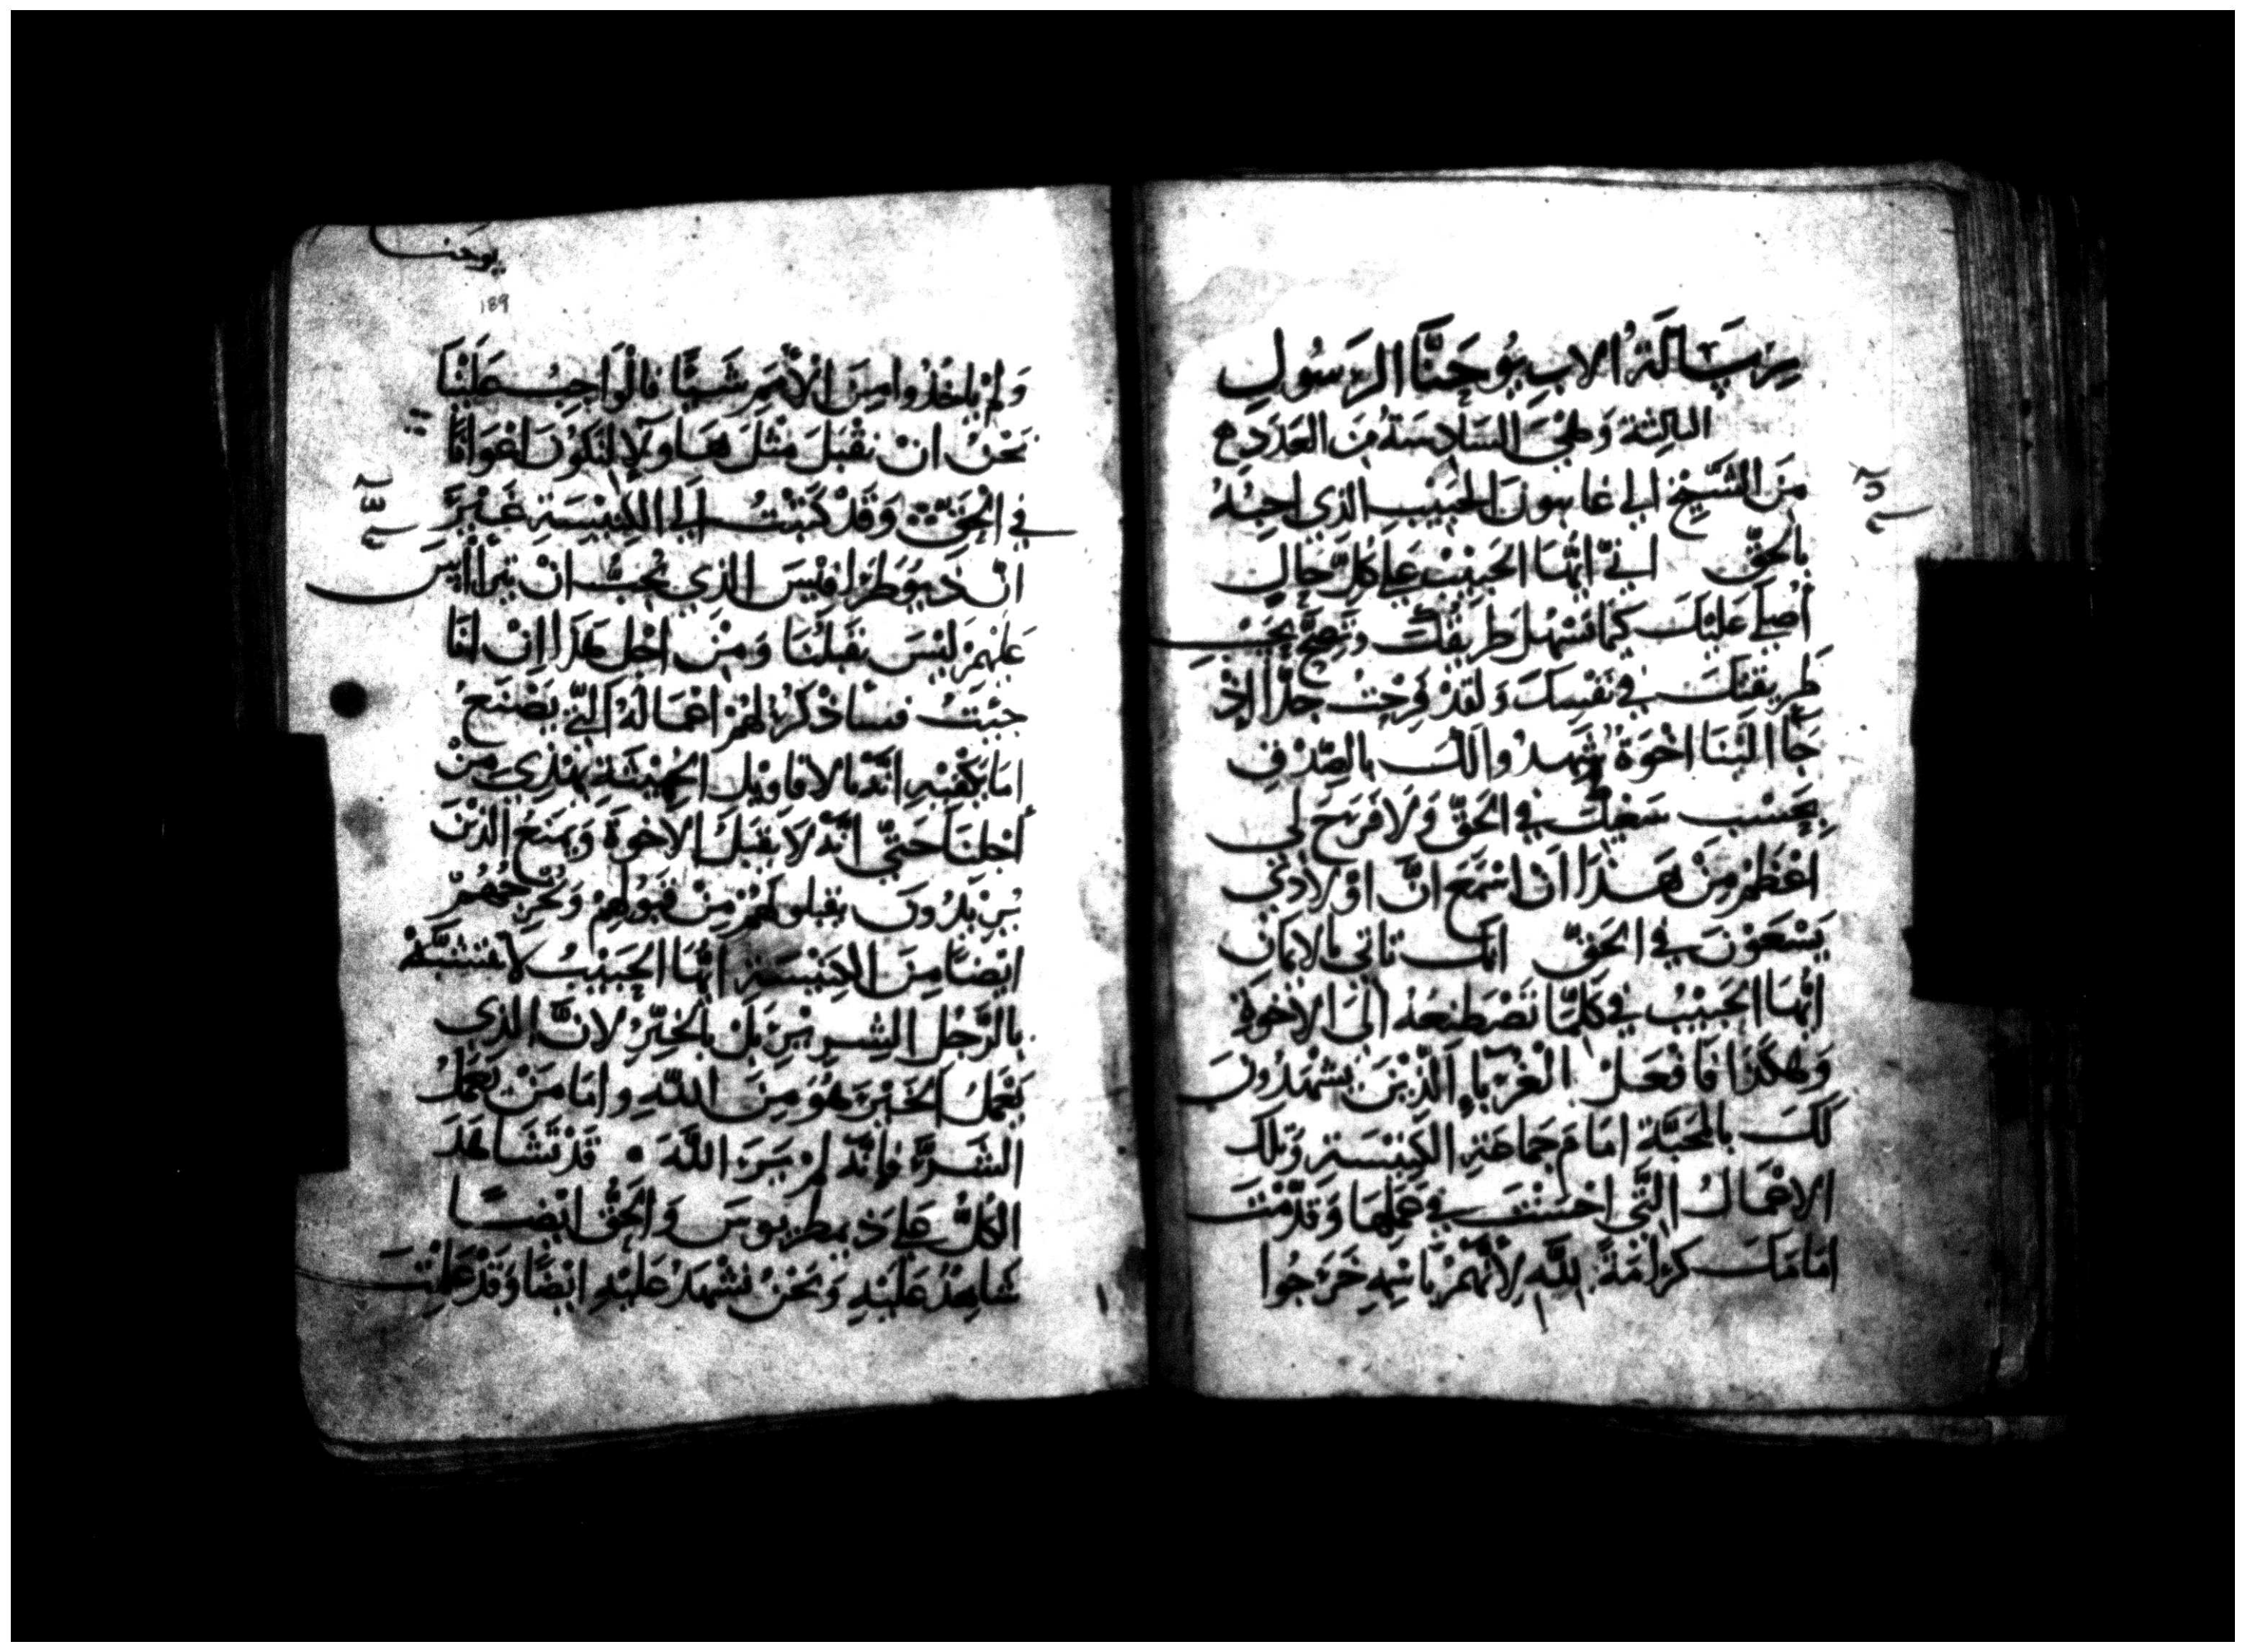 رِسَالَةُ الاب يُوحَنَّا الرَسُولِ
الثالِثَة وَهْيَ السَادِسَةُ مِنَ العَدَدِ
مِنَ الشَّيْخ الي غايون الحَبَيْب الذي احِبُهُ
بالحَقّ اني ايُّهَا الحَبِيْب عَلي كُلّ حَالٍ
أُصَلي عَليْكَ كَيما تسْهُل طريقُكَ وَتَصِحَّ بحَسْبِ
طَرِيقتِكَ في نَفْسِكَ وَلَقدْ فَرِحْتُ جِدًّا اِذْ
جَا الَيْنَا اخْوَةٌ شَهِدُوا لكَ بالصِّدْقِ
بحَسْبِ سَعْيِكَ في الحَقّ وَلا فَرَحَ لي
اعْظَمْ مِنْ هَذَا اَنْ اسْمَعَ انَّ اوْلادي
يَسْعَوْنَ في الحَقّ انك تاتي بالايمان
ايُّهَا الحَبِيْبُ في كلِّمَا تَصْطَنِعَهُ الَى الاخوَةِ
وَهكذَا فَافعَلْ الغُرَباءِ الّذِينَ يشْهَدُونَ
لَكَ بالمحَبّةِ امَامَ جمَاعَةِ الكَنِيْسَةِ وَتِلكَ
الاعْمالُ الّتِي احْسَنْتَ في عَمَلِهَا وَقدَّمْتَ
امَامَكَ كَرَامَةً للهِ لأنّهُمْ باسْمِهِ خَرَجُوا
يوحنا
189
وَلمْ ياخذُوا مِنَ الأُمَمِ شَيْئًا فالوَاجِبُ عَلَيْنَا
نَحْنُ انْ نقْبَلَ مثْلَ هَاولاِ لنَكوُنَ اعْوَانًا
في الحَقّ وَقَدْ كَتَبْتُ الي الكَنِيْسَةِ غَيْرَ
انّ ذيُوطرَافِيْسَ الذي يُحِبُّ انْ يَتراَاسَ
عَلَيْهِمْ لَيْسَ يَقبَلُنَا وَمِنْ اجْل هَذا اِنْ انَا
جيْتُ فسَاذْكُرُ لهُمْ اعْمَالَهُ الّتي يَصْنَعُ
امَا يَكْفِيْهِ انّهُ بالاقاوِيْل الخَبِيْثَةِ يَهْذِي مِنْ
أجْلِنَا حَتّي انّهُ لاَ يَقبَلُ الاخوَةَ وَيمنَعُ الذيْنَ
يُرِيْدُونَ يقبلوهُمْ مِنْ قَبُولِهِمْ وَيُخْرِجُهُمْ
ايْضًا مِنَ الكنِيْسَةِ ايُّهَا الحَبِيْبُ لا تتَشَبَّهْ
بالرَّجُل الشِّرِيْرِ بَلْ بالخَيِّرْ لانَّ الذي
يَعْمَلُ الخَيْرَ هُوَ مِنَ اللّهِ وامَا مَنْ يعمَلُ
الشَّرَّ فإنّهُ لمْ يَرَ اللَّهَ قدْ يَشَاهَدَ
الكُلُّ عَلي ذيمطريوسَ وَالحَقُّ ايْضًا
شَاهِدٌ عَلَيْهِ وَنَحْنُ نَشْهَدُ عَلَيْهِ ايْضًا وَقدْ عَلِمْتَ